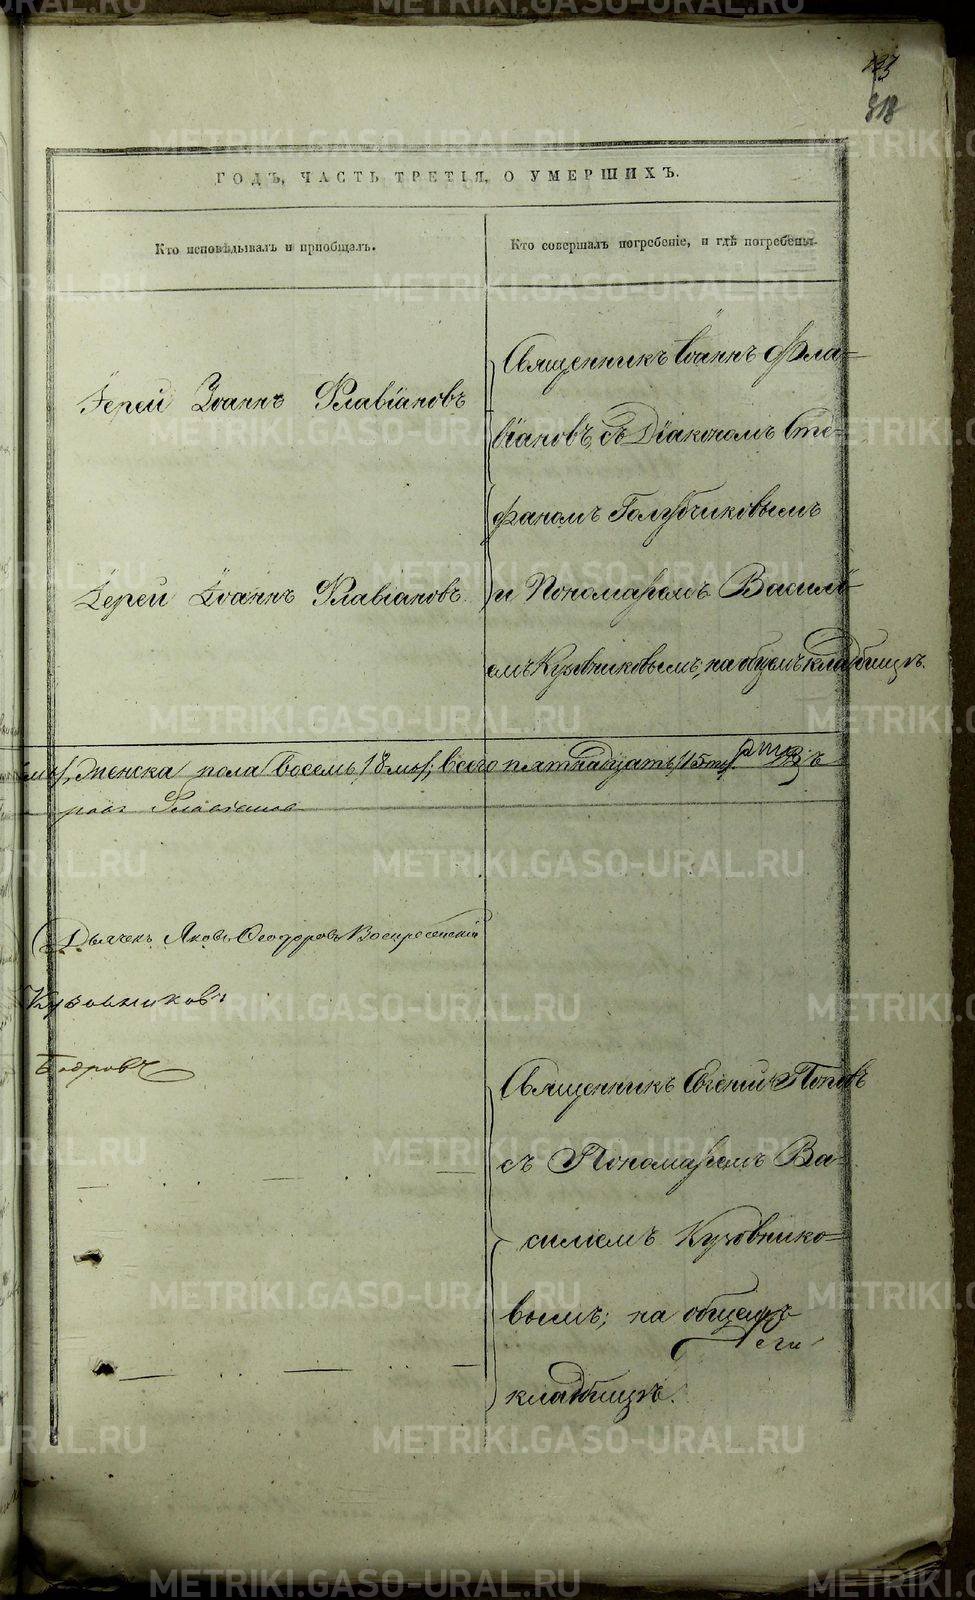 318
ГОДЪ, ЧАСТЬ ТРЕТІЯ, О УМЕРШИХЪ.
Кто исповѣдывалъ и пріобщалъ.
Кто совершалъ погребеніе, и гдѣ погребены.
Іерей Іоаннъ Флавіановъ
Священникъ Іоаннъ Фла-
віановъ, съ Діакономъ Сте-
фаномъ Голубчиковымъ
Іерей Іоаннъ Флавіановъ
и Пономаремъ Василі-
емъ Кузовниковымъ, на общемъ кладбищѣ.
женска пола восемь /8мь/; всего пятнадцать /15ть/.
Флавіановъ
Дьячекъ Яковъ Ѳеодоровъ Воскресенскій
Кузовниковъ
Бобровъ
Священникъ Евгеній Поповъ
съ Пономаремъ Ва-
силіемъ Кузовнико-
вымъ; на общемъ
кладбищѣ.
METRIKI.GASO-URAL.RU